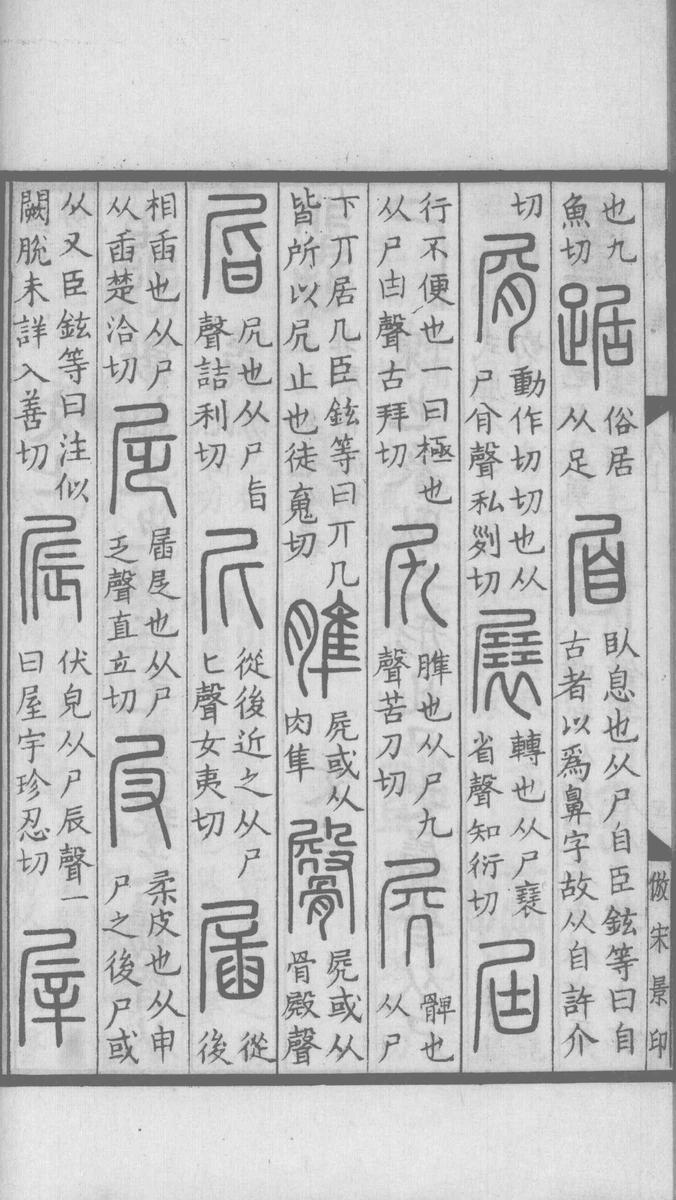 也九魚切踞俗居从足眉臥息也从尸自臣鉉等曰自古者以爲鼻字故从自許介
切屑動作切切也从尸㕯聲私列切展轉也从尸𧝑省聲知衍切屆
行不便也一曰極也从尸凷聲古拜切尻脽也从尸九聲苦刀切𡰪髀也从尸
下丌居几臣鉉等曰丌几皆所以凥止也徒䰟切脽𡰪或从肉隼臀𡰪或从骨殿聲
𡰿尻也从尸旨聲詰利切尼從後近之从尸匕聲女夷切𡱀從後
相臿也从尸从臿楚洽切𡰯𡱀𡰯也从尸乏聲直立切㞋柔皮也从申尸之後尸或
从又臣鉉等曰注似闕脫未詳人善切屒伏皃从尸辰聲一曰屋宇珍忍切屖
倣宋景印